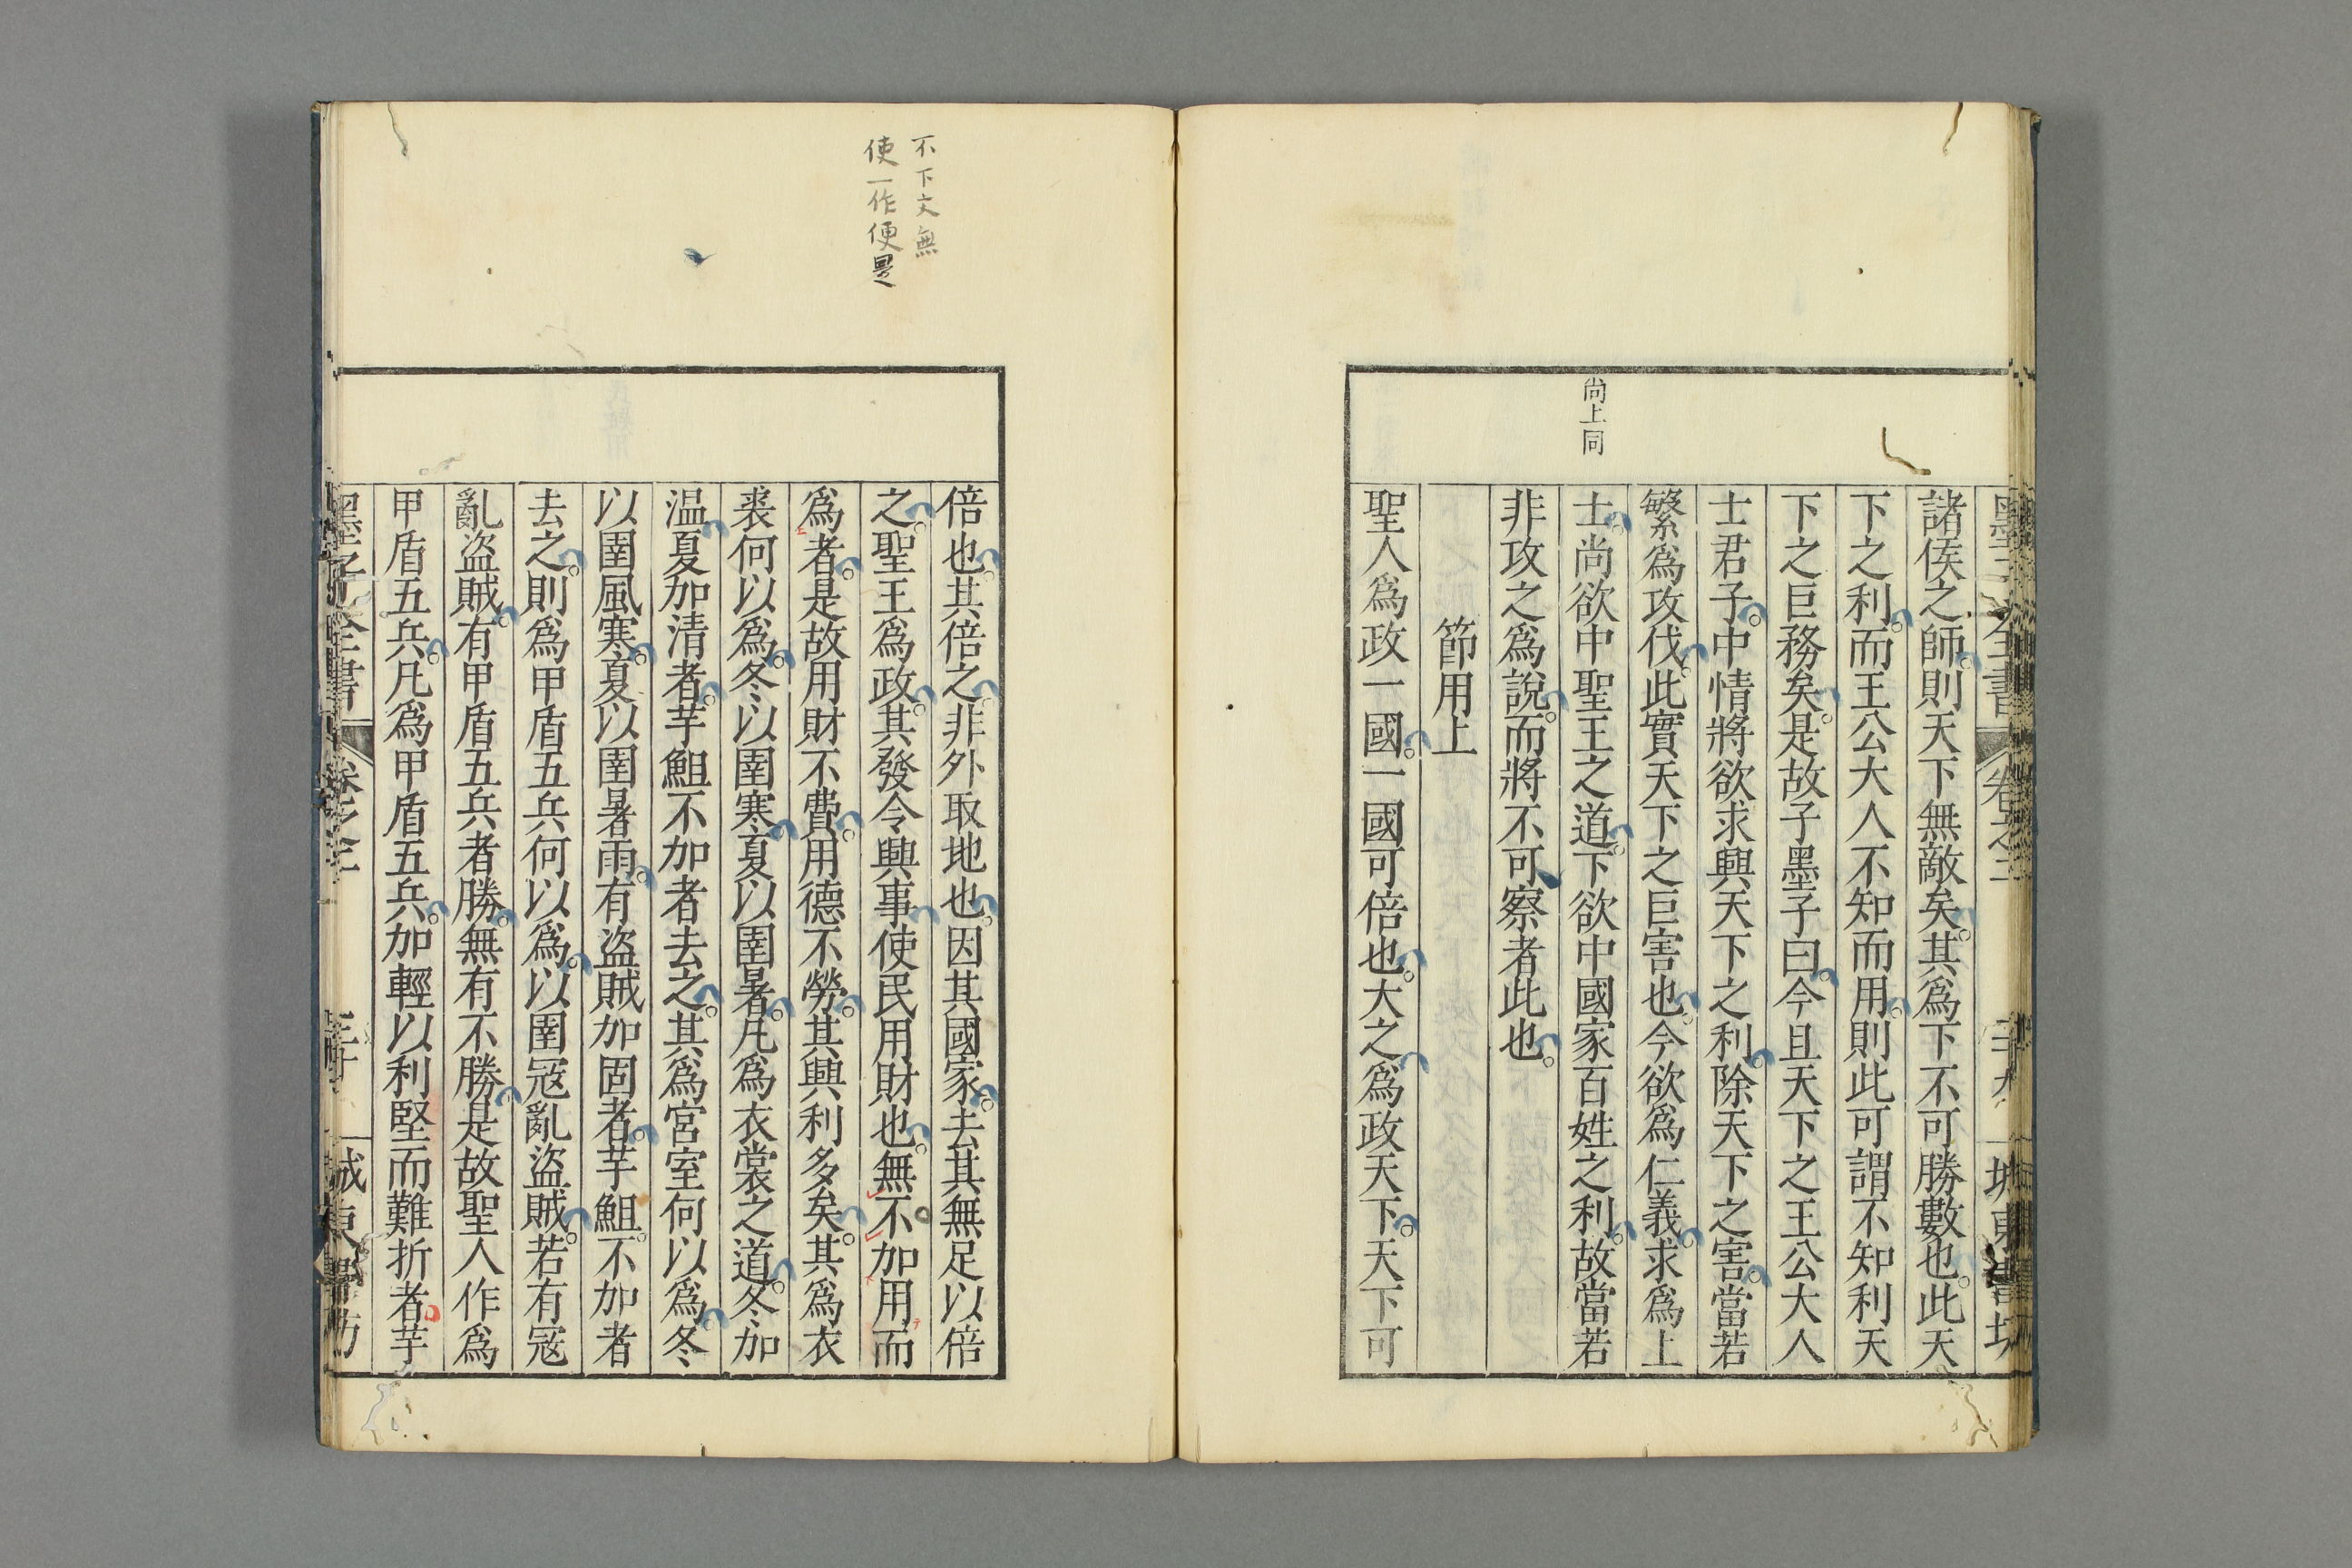 尚上同
諸侯之師則天下無敵矣其爲下不可勝數也此天
下之利而王公大人不知而用則此可謂不知利天
下之巨務矣是故子墨子曰今且天下之王公大人
士君子中情將欲求興天下之利除天下之害當若
繁爲攻伐此實天下之巨害也今欲爲仁義求爲上
士尚欲中聖王之道下欲中國家百姓之利故當若
非攻之爲說而將不可察者此也
節用上
聖人爲政一國一國可倍也大之爲政天下天下可
不下文無
使一作便
倍也其倍之非外取地也因其國家去其無足以倍
之聖王爲政其發令興事使民用財也無不加用而
爲者是故用財不費用德不勞其興利多矣其爲衣
裘何以爲冬以圉寒夏以圉暑凡爲衣裳之道冬加
温夏加清者芋䱉不加者去之其爲宮室何以爲冬
以圉風寒夏以圉暑雨有盜賊加固者芋䱉不加者
去之則爲甲盾五兵何以爲以圉寇亂盜賊若有寇
亂盜賊有甲盾五兵者勝無有不勝是故聖人作爲
甲盾五兵凡爲甲盾五兵加輕以利堅而難折者芋